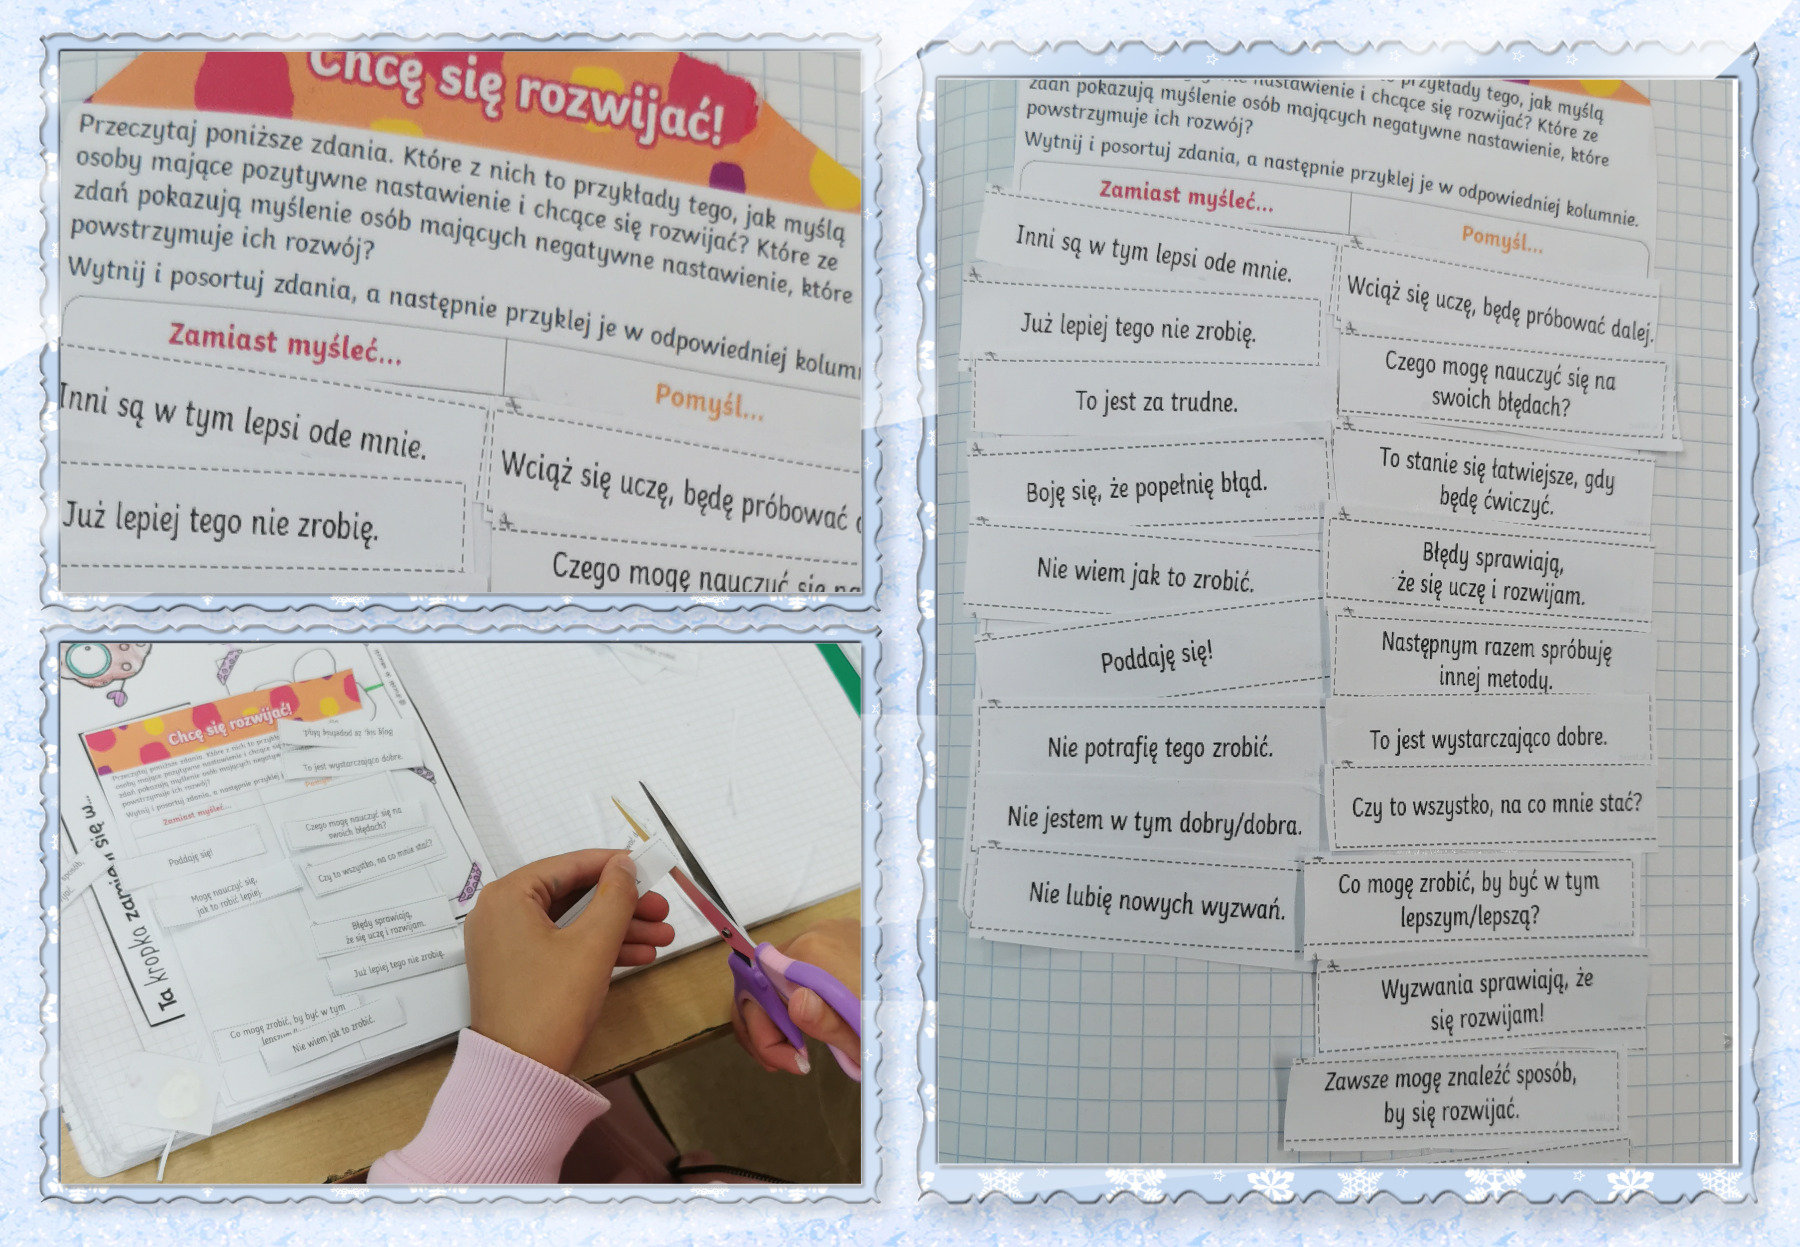 Chcę się rozwijać!
Przeczytaj poniższe zdania. Które z nich to przykłady tego, jak myślą
osoby mające pozytywne nastawienie i chcące się rozwijać? Które ze
zdań pokazują myślenie osób mających negatywne nastawienie, które
powstrzymuje ich rozwój?
Wytnij i posortuj zdania, a następnie przyklej je w odpowiedniej kolumn
Zamiast myśleć...
Pomyśl...
Inni są w tym lepsi ode mnie.
Już lepiej tego nie zrobię.
Wciąż się uczę, będę próbować
Czego mogę nauczyć się na
Chcę się rozwijać!
Boję się, że popełnię błąd.
To jest wystarczająco dobre.
Zamiast myśleć...
Czego mogę nauczyć się na
swoich błędach?
Poddaję się!
Czy to wszystko, na co mnie stać?
Mogę nauczyć się,
jak to robić lepiej.
Błędy sprawiają,
że się uczę i rozwijam.
Już lepiej tego nie zrobię.
Co mogę zrobić, by być w tym
Nie wiem jak to zrobić.
Ta kropka zamienia się w...
nastawienie i chcące się rozwijać? Które ze
przykłady tego, jak myślą
zdań pokazują myślenie osób mających negatywne nastawienie, które
powstrzymuje ich rozwój?
Wytnij i posortuj zdania, a następnie przyklej je w odpowiedniej kolumnie.
Zamiast myśleć...
Pomyśl...
Inni są w tym lepsi ode mnie.
Już lepiej tego nie zrobię.
To jest za trudne.
Boję się, że popełnię błąd.
Nie wiem jak to zrobić.
Poddaję się!
Nie potrafię tego zrobić.
Nie jestem w tym dobry/dobra.
Nie lubię nowych wyzwań.
Wciąż się uczę, będę próbować dalej.
Czego mogę nauczyć się na
swoich błędach?
To stanie się łatwiejsze, gdy
będę ćwiczyć.
Błędy sprawiają,
że się uczę i rozwijam.
Następnym razem spróbuję
innej metody.
To jest wystarczająco dobre.
Czy to wszystko, na co mnie stać?
Co mogę zrobić, by być w tym
lepszym/lepszą?
Wyzwania sprawiają, że
się rozwijam!
Zawsze mogę znaleźć sposób,
by się rozwijać.